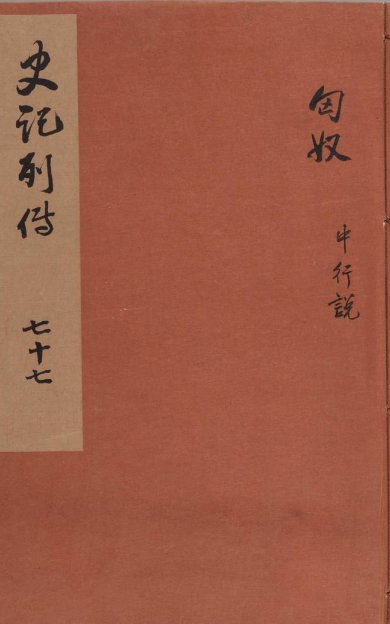 匈奴
中行説
史記列傳
七十七